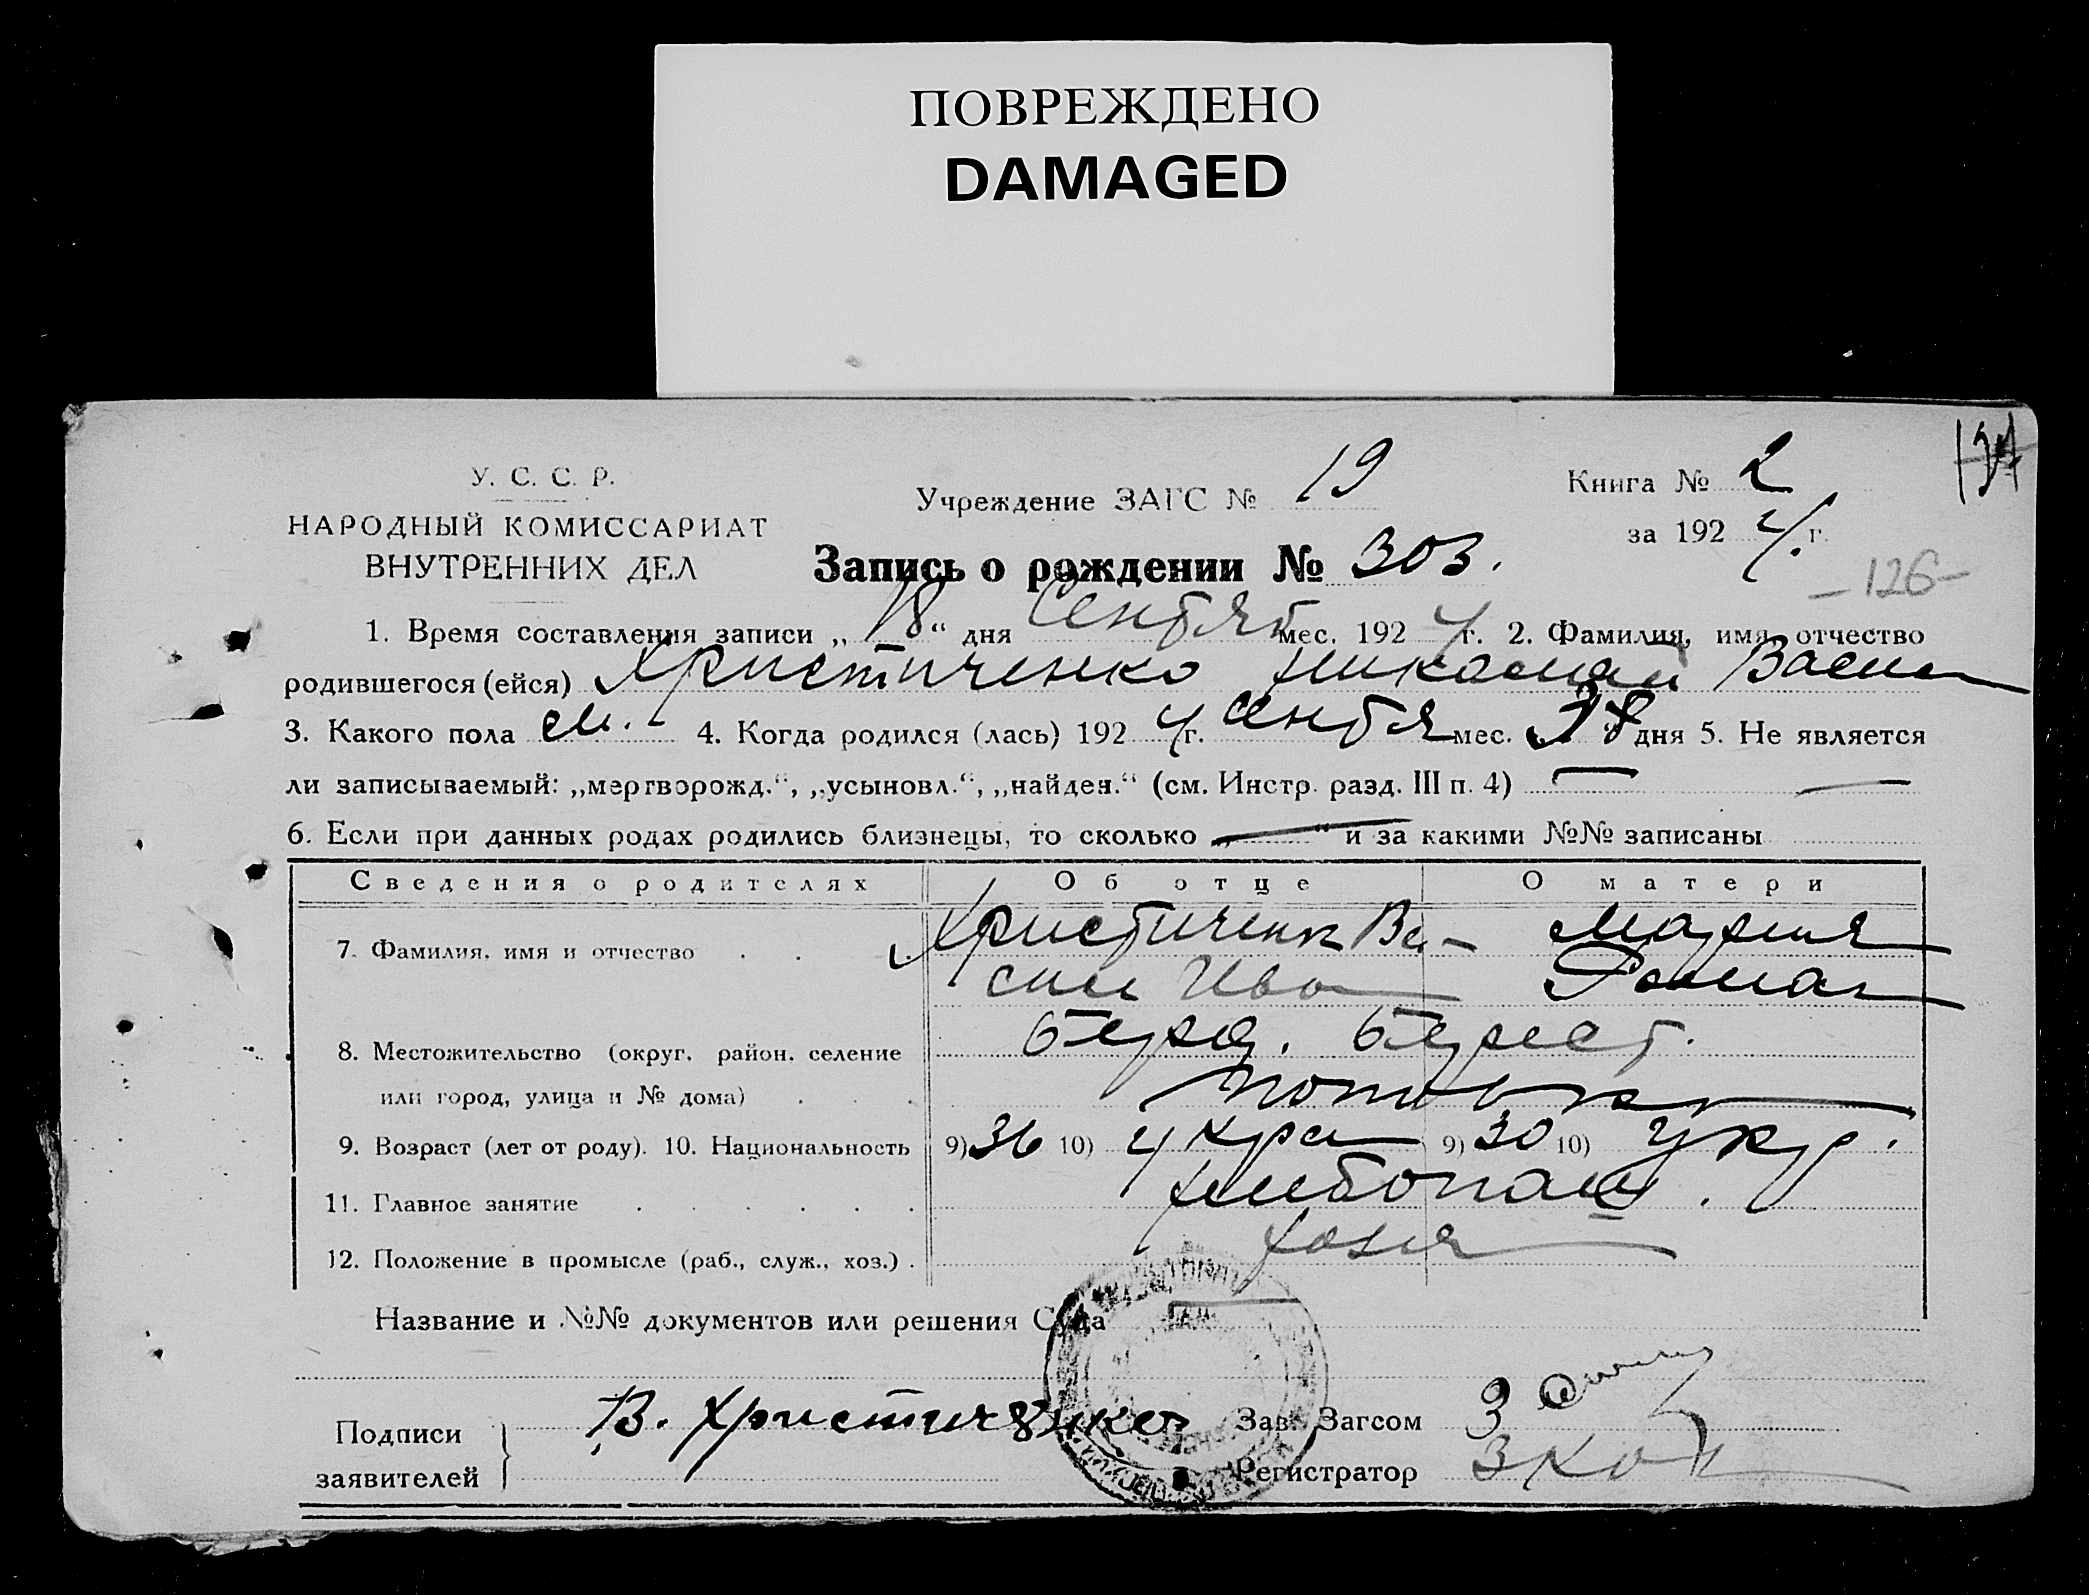 ПОВРЕЖДЕНО
DAMAGED
У. С. С. Р.
НАРОДНЫЙ КОМИССАРИАТ
ВНУТРЕННИХ ДЕЛ
Учреждение ЗАГС № 19
Книга № 2
за 192 4 г.
Запись о рождении № 303.
— 126 —
1. Время составления записи „18“ дня Сентяб мес. 192 4 г. 2. Фамилия, имя, отчество
родившегося (ейся) Христиченко Николай Васил
3. Какого пола м. 4. Когда родился (лась) 192 4 г. Сентбя мес. 8 дня 5. Не является
ли записываемый: „мертворожд.“, „усыновл.“, „найден.“ (см. Инстр. разд. III п. 4) —
6. Если при данных родах родились близнецы, то сколько „—“ и за какими №№ записаны
Сведения о родителях Об отце О матери
7. Фамилия, имя и отчество Христиченк Ва- Мария
сил Ива Роман
8. Местожительство (округ, район, селение Берд. Берест.
или город, улица и № дома)
9. Возраст (лет от роду). 10. Национальность 9) 36 10) Укра 9) 30 10) Укр.
11. Главное занятие хлибопаш.
12. Положение в промысле (раб., служ., хоз.) хозя
Название и №№ документов или решения Суда
Подписи
заявителей
В. Христиченко
Зав. Загсом
Регистратор